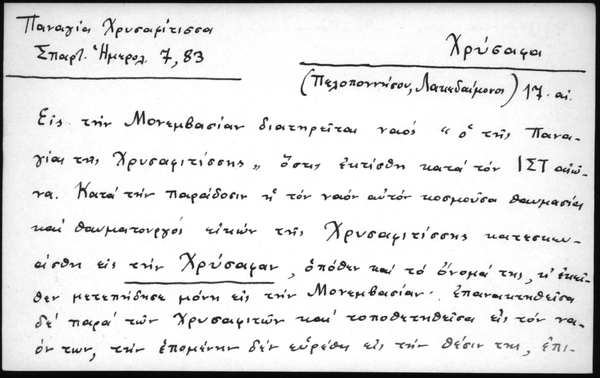 Παναγία Χρυσαφίτισσα
Σπαρτ. Ἡμερολ. 7, 83
Χρύσαφα
(Πελοποννήσου, Λακεδαίμονος) 17. αἰ.
Εἰς τὴν Μονεμβασίαν διατηρεῖται ναός "ὁ τῆς Πανα-
γίας τῆς Χρυσαφιτίσσης" ὅστις ἐκτίσθη κατά τόν ΙΣΤ αἰῶ-
να. Κατά τὴν παράδοσιν ἡ τόν ναόν αὐτόν κοσμοῦσα θαυμασία
καί θαυματουργός εἰκών τῆς Χρυσαφιτίσσης κατεσκευ-
άσθη εἰς τὴν Χρύσαφαν, ὁπόθεν καί τό ὄνομά της, κ' ἐκεῖ-
θεν μετεπήδησε μόνη εἰς τὴν Μονεμβασίαν· ἐπανακτηθεῖσα
δέ παρά τῶν Χρυσαφιτῶν καί τοποθετηθεῖσα εἰς τόν να-
όν των, τὴν ἑπομένην δέν εὑρέθη εἰς τὴν θέσιν της, ἐπι-